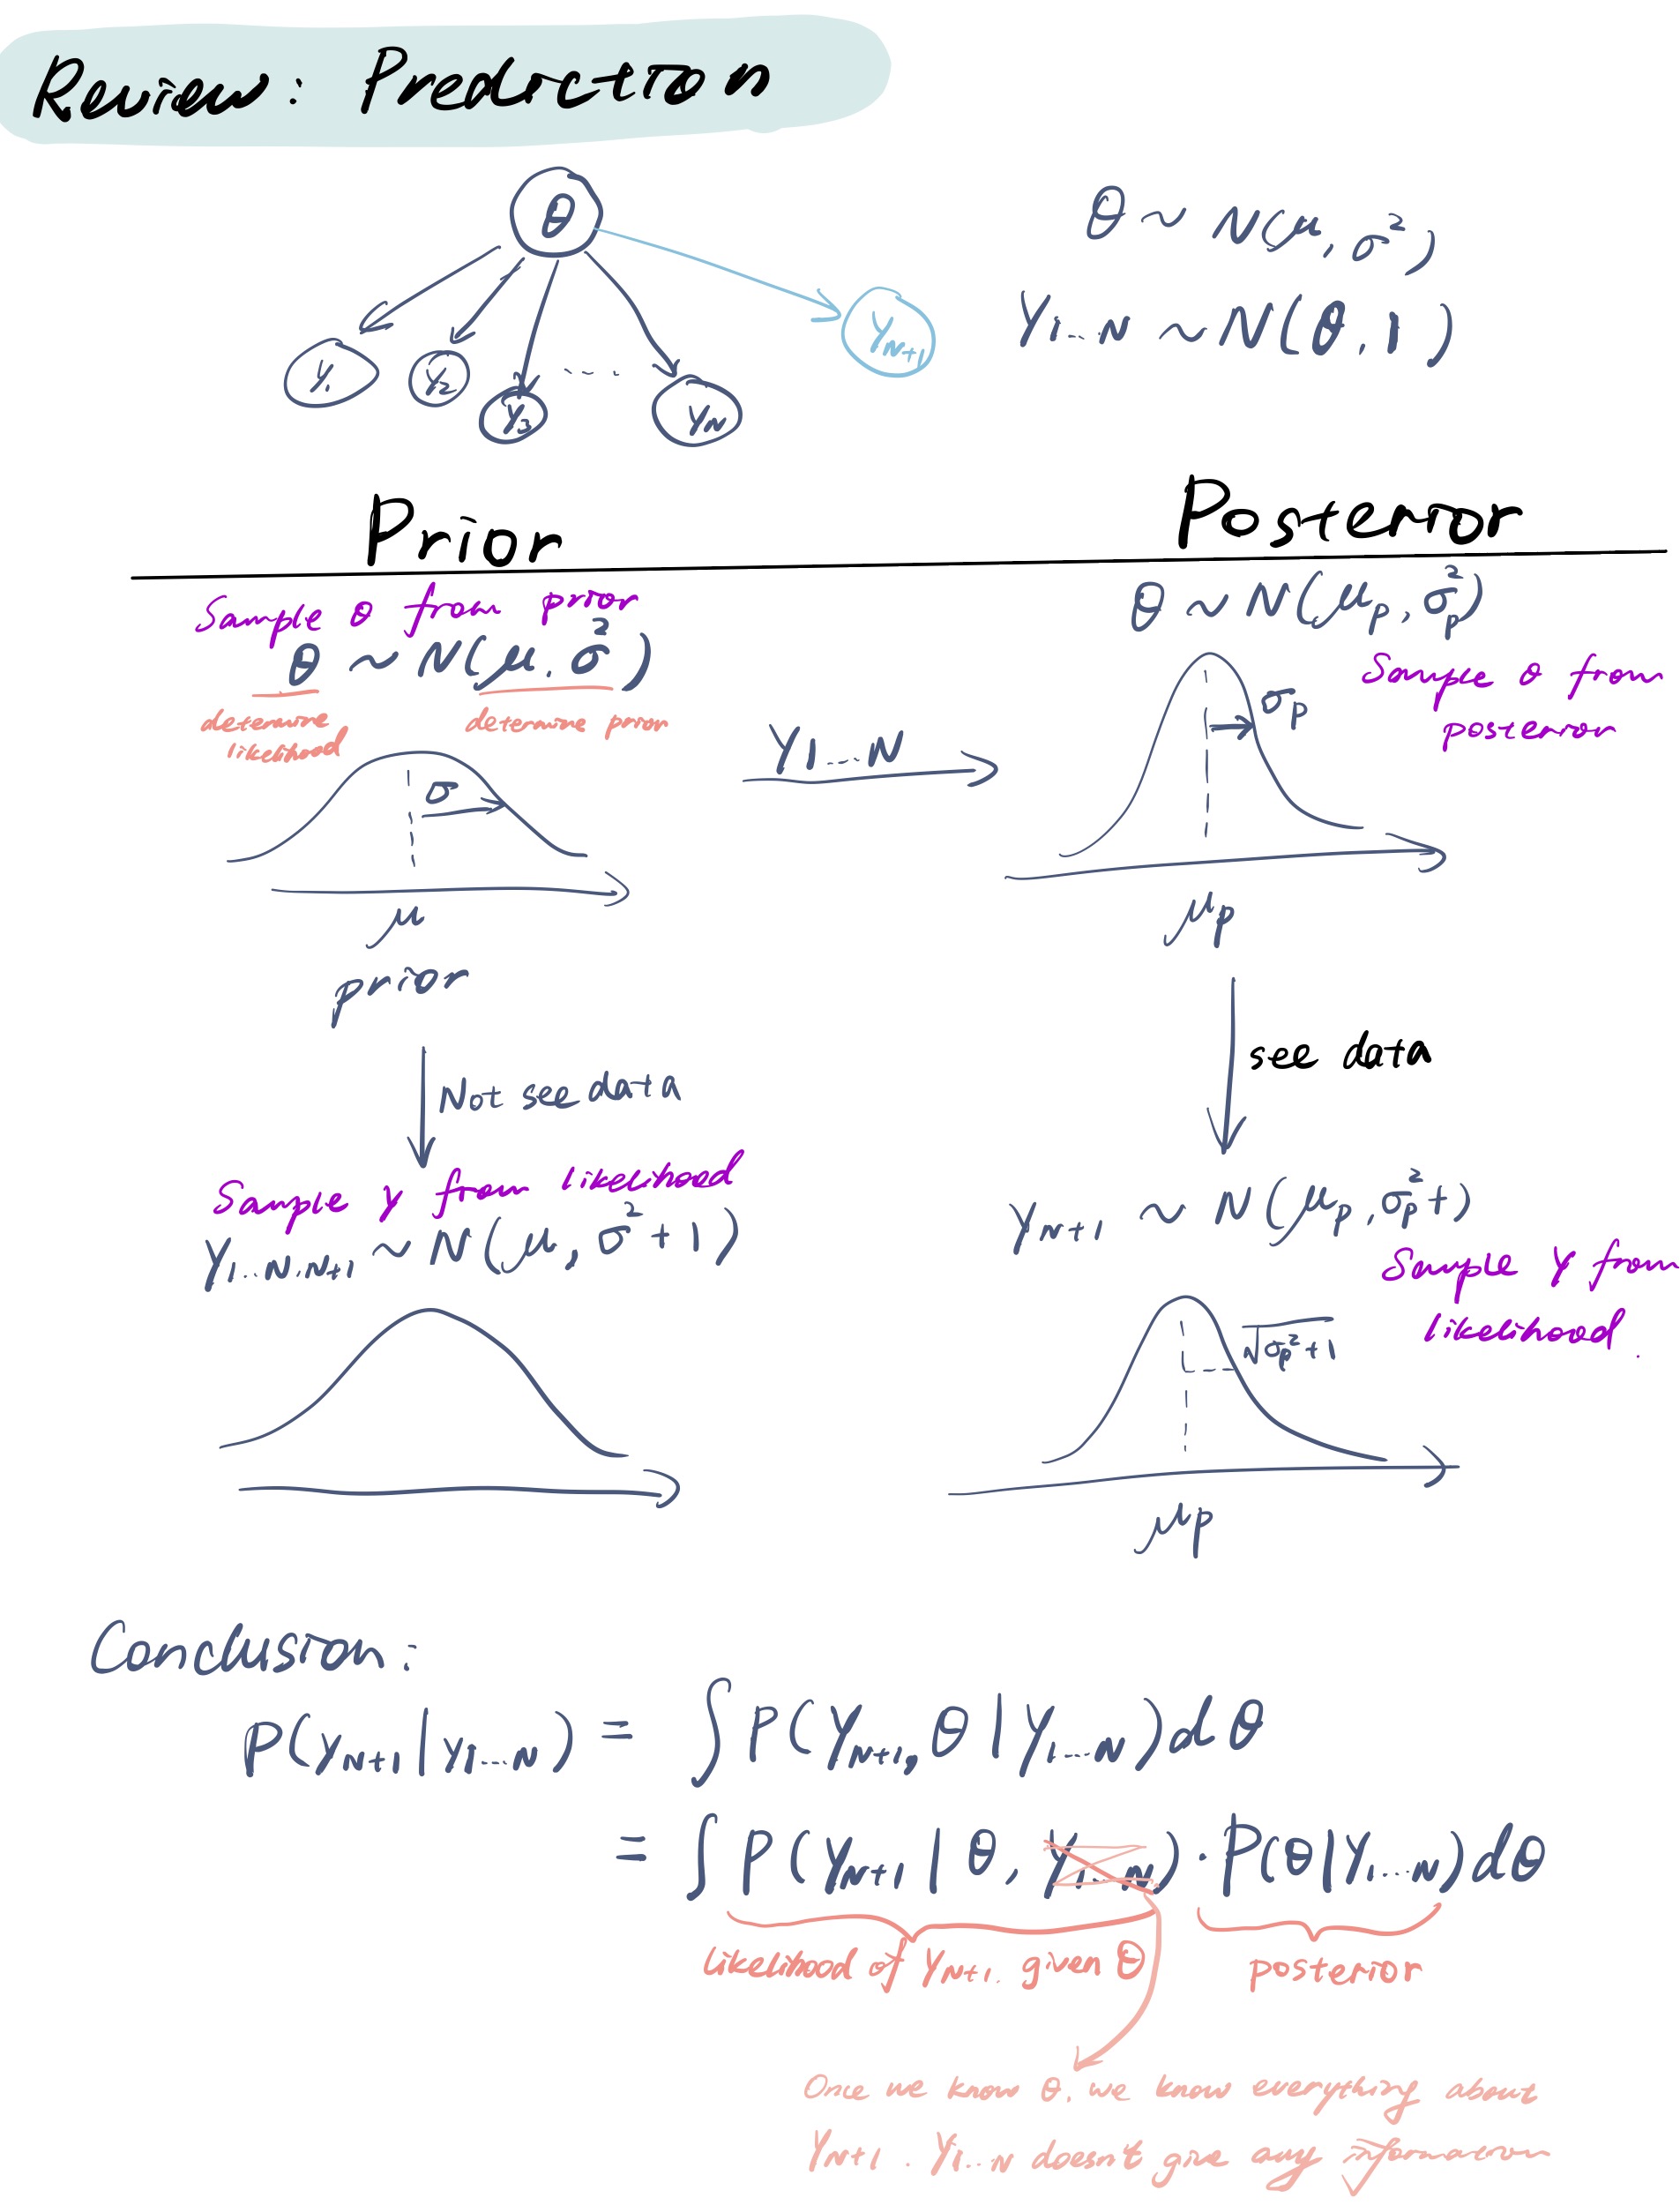 Review: Prediction
θ
θ ~ N(μ, σ²)
Y1...N ~ N(θ, 1)
Y1 Y2 Y3 ---- YN YN+1
Prior
Posterior
Sample θ from prior
θ ~ N(μ, σ²)
determine likelihood
determine prior
σ
μ
prior
Y1...N
θ ~ N(μp, σp²)
Sample θ from
posterior
σp
μp
Not see data
see data
Sample Y from likelihood
Y1..N,N+1 ~ N(μ, σ²+1)
YN+1 ~ N(μp, σp²+)
Sample Y from
likelihood.
√σp²+1
μp
Conclusion:
P(YN+1|Y1...N) = ∫P(YN+1, θ|Y1...N)dθ
= ∫P(YN+1|θ, Y1...N)·P(θ|Y1...N)dθ
likelihood of YN+1. given θ
posterior
Once we know θ, we know everything about
YN+1. Y1..N doesn't give any information